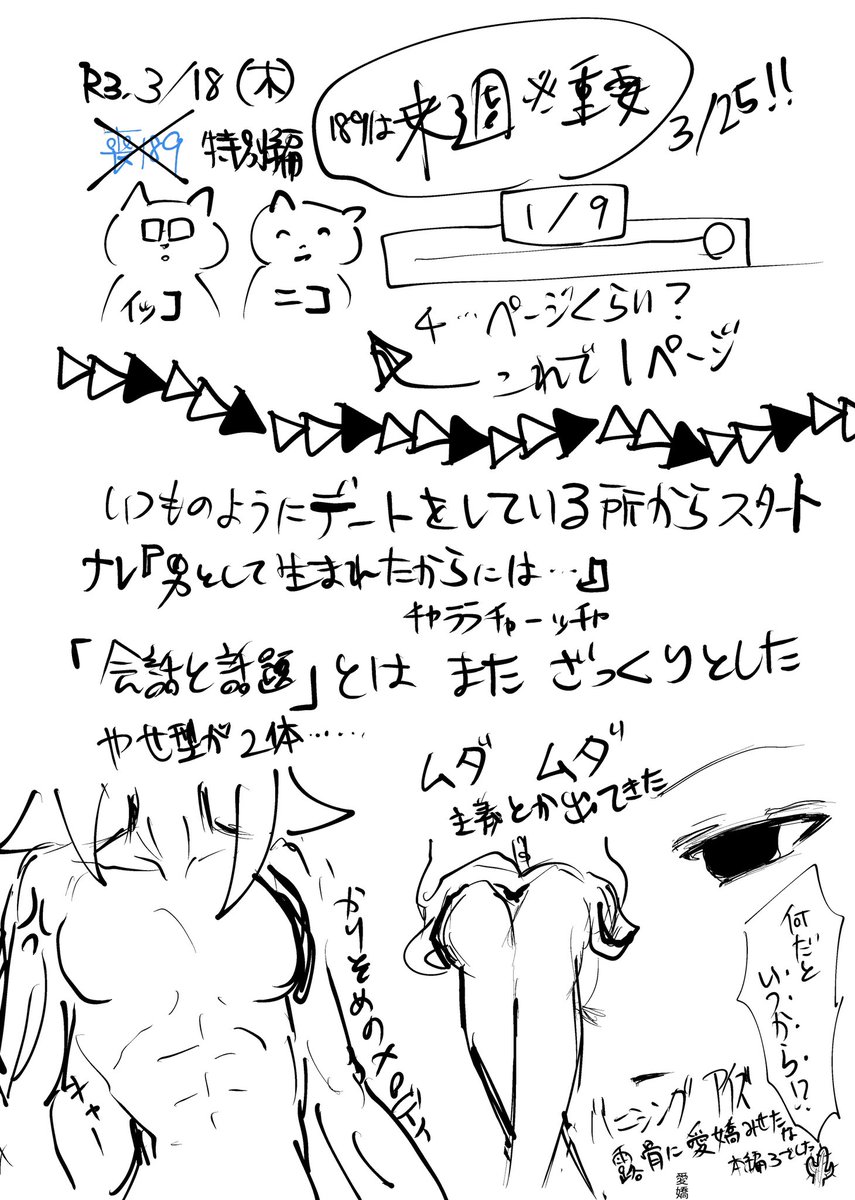 R3.3/18(木)
189は来週※重要
3/25!!
喪189 特別編
1/9
イッコ
ニコ
4…ページくらい?
これで1ページ
いつものようにデートをしている所からスタート
ナレ『男として生まれたからには…』
チャラララチャーッチャ
「会話と話題」とは また ざっくりとした
やせ型が2体……
ムダ ムダ
主義とか出てきた
かりそめのメロディ
何だと
いつから!?
バニシング アイズ
露骨に愛嬌みせたな
本編3でした
愛嬌